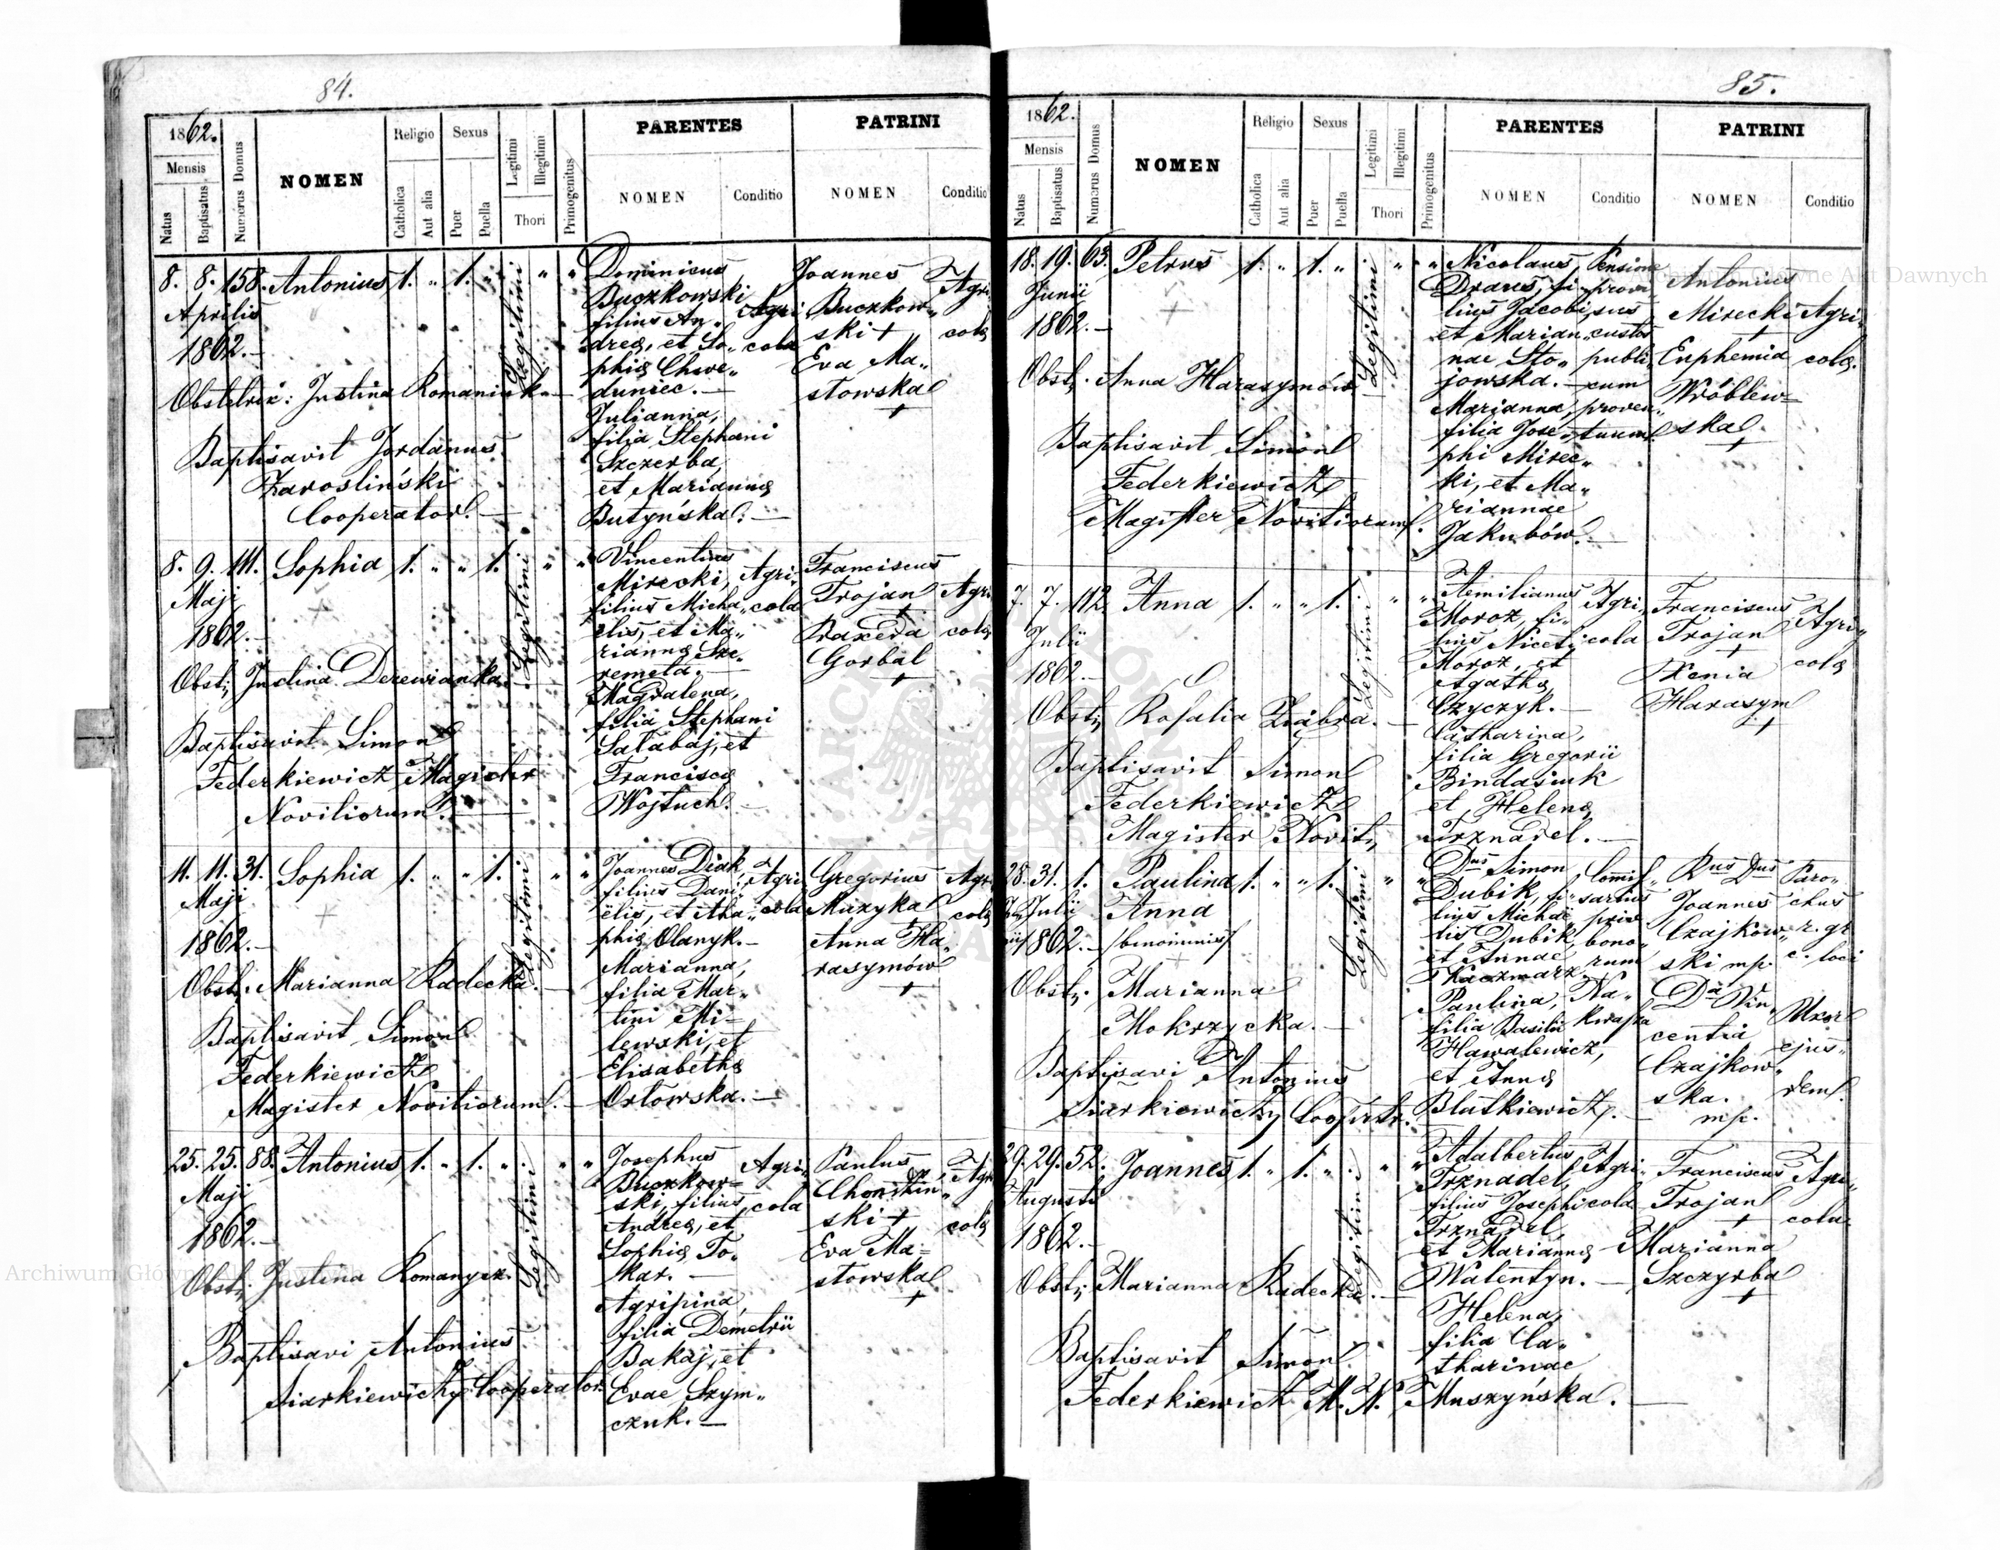 84.
1862.
Mensis
Natus
Baptisatus
Numerus Domus
NOMEN
Religio
Catholica
Aut alia
Sexus
Puer
Puella
Legitimi
Illegitimi
Thori
Primogenitus
PARENTES
NOMEN
Conditio
PATRINI
NOMEN
Conditio
8. 8. 158. Antonius 1. " 1. " Legitimi " "
Aprilis
1862.
Obstetrix: Justina Romaniuk
Baptisavit Jordanus
Zarosliński
Cooperator.
Dominicus
Buczkowski
filius An-
dreą, et So-
phią Chwe-
duniec.
Julianna,
filia Stephani
Szczerba,
et Marianną
Butyńska.
Agri
cola
Joannes
Buczkow-
ski +
Eva Ma-
stowska
+
Agri
colą
8. 9. 111. Sophia 1. " " 1. Legitimi " "
Maji
1862.
Obst: Justina Derewianka
Baptisavit Simon
Federkiewicz Magister
Novitiorum.
Vincentius
Mirecki,
filius Micha-
elis, et Ma-
rianną Sze-
remeta.
Magdalena,
filia Stephani
Salabaj, et
Franciscą
Wojtuch.
Agri-
cola
Franciscus
Trojan
+
Praxeda
Gorbal
+
Agri
colą
11. 11. 31. Sophia 1. " " 1. Legitimi " "
Maji
1862.
Obst: Marianna Radecka
Baptisavit Simon
Federkiewicz
Magister Novitiorum.
Joannes Diak,
filius Dani-
ëlis, et Aha-
phią Olanyk.
Marianna,
filia Mar-
tini Mi-
lewski, et
Elisabethą
Orłowska.
Agri
cola
Gregorius
Muzyka
Anna Ha-
rasymów
+
Agri
colą
25. 25. 88. Antonius 1. " 1. " Legitimi " "
Maji
1862.
Obst: Justina Romanyszn
Baptisavi Antonius
Siarkiewicz Cooperator
Josephus
Buczkow-
ski, filius
Andreą, et
Sophią To-
kar.
Agripina,
filia Demetrii
Bakaj, et
Evae Szym-
czuk.
Agri-
cola
Paulus
ski +
Eva Ma-
stowska
+
Agri
colą
85.
1862.
Mensis
Natus
Baptisatus
Numerus Domus
NOMEN
Religio
Catholica
Aut alia
Sexus
Puer
Puella
Legitimi
Illegitimi
Thori
Primogenitus
PARENTES
NOMEN
Conditio
PATRINI
NOMEN
Conditio
18. 19. 63. Petrus 1. " 1. " Legitimi " "
Junii
1862.
Obst: Anna Harasymów
Baptisavit Simon
Federkiewicz
Magister Novitiorum.
Nicolaus
Draus, fi-
lius Jacobi
et Marian-
nae Sto-
jowska.
Marianna,
filia Jose-
phi Mirec-
ki, et Ma-
riannae
Jakubów.
Pensione
provi
sus
custos
publi-
cum
proven-
tuum
Antonius
Mirecki
+
Euphemia
Wróblew-
ska
+
Agri-
colą.
7. 7. 112. Anna 1. " " 1. Legitimi " "
Julii
1862.
Obst: Rosalia Ziabra.
Baptisavit Simon
Federkiewicz
Magister Novit:
Aemilianus
Moroz, fi-
lius Niceti
Moroz, et
Agathą
Czyczyk.
Catharina,
filia Gregorii
Bindasiuk
et Heleną
Trznadel.
Agri-
cola
Franciscus
Trojan
+
Xenia
Harasym
+
Agri-
colą
28. 31. 1. Paulina 1. " " 1. Legitimi " "
Julii Anna
1862. /binominis/
Obst: Marianna
Mokrzycka.
Baptisavi Antonius
Siarkiewicz Cooperator.
Dnus Simon
Dubik, fi-
lius Michaë-
lis Dubik,
et Annae
Kaczmarz.
Paulina,
filia Basilii
Hawalewicz,
et Anną
Blutkiewicz.
Commis-
sarius
priv
bono-
rum
Na-
kwasza
Rnus Dnus
Joannes
Czajkow-
ski mp.
Dna Vin-
centia
Czajkow-
ska.
mp.
Paro-
chus
r. gr
c. loci
Uxor
ejus-
dem.
29. 29. 52. Joannes 1. " 1. " Legitimi " "
Augusti
1862.
Obst: Marianna Radecka
Baptisavit Simon
Federkiewicz M. N.
Adalbertus
Trznadel,
filius Josephi
Trznadel,
et Mariannę
Walentyn.
Helena,
filia Ca-
tharinae
Muszyńska.
Agri-
cola
Franciscus
Trojan
+
Marianna
Szczyrba
+
Agri-
cola
Archiwum Główne Akt Dawnych
Archiwum Główne Akt Dawnych